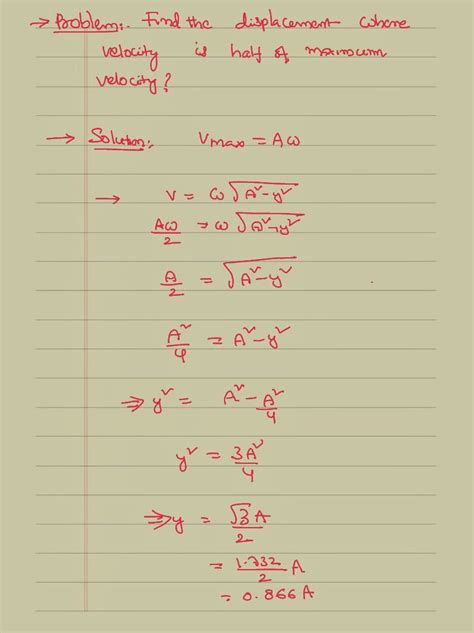 → Problem:- Find the displacement where
velocity is half of maximum
velocity?
→ Solution:- Vmax = Aω
→ V = ω√(A² - y²)
Aω/2 = ω√(A² - y²)
A/2 = √(A² - y²)
A²/4 = A² - y²
⇒ y² = A² - A²/4
y² = 3A²/4
⇒ y = √3 A/2
= 1.732/2 A
= 0.866 A